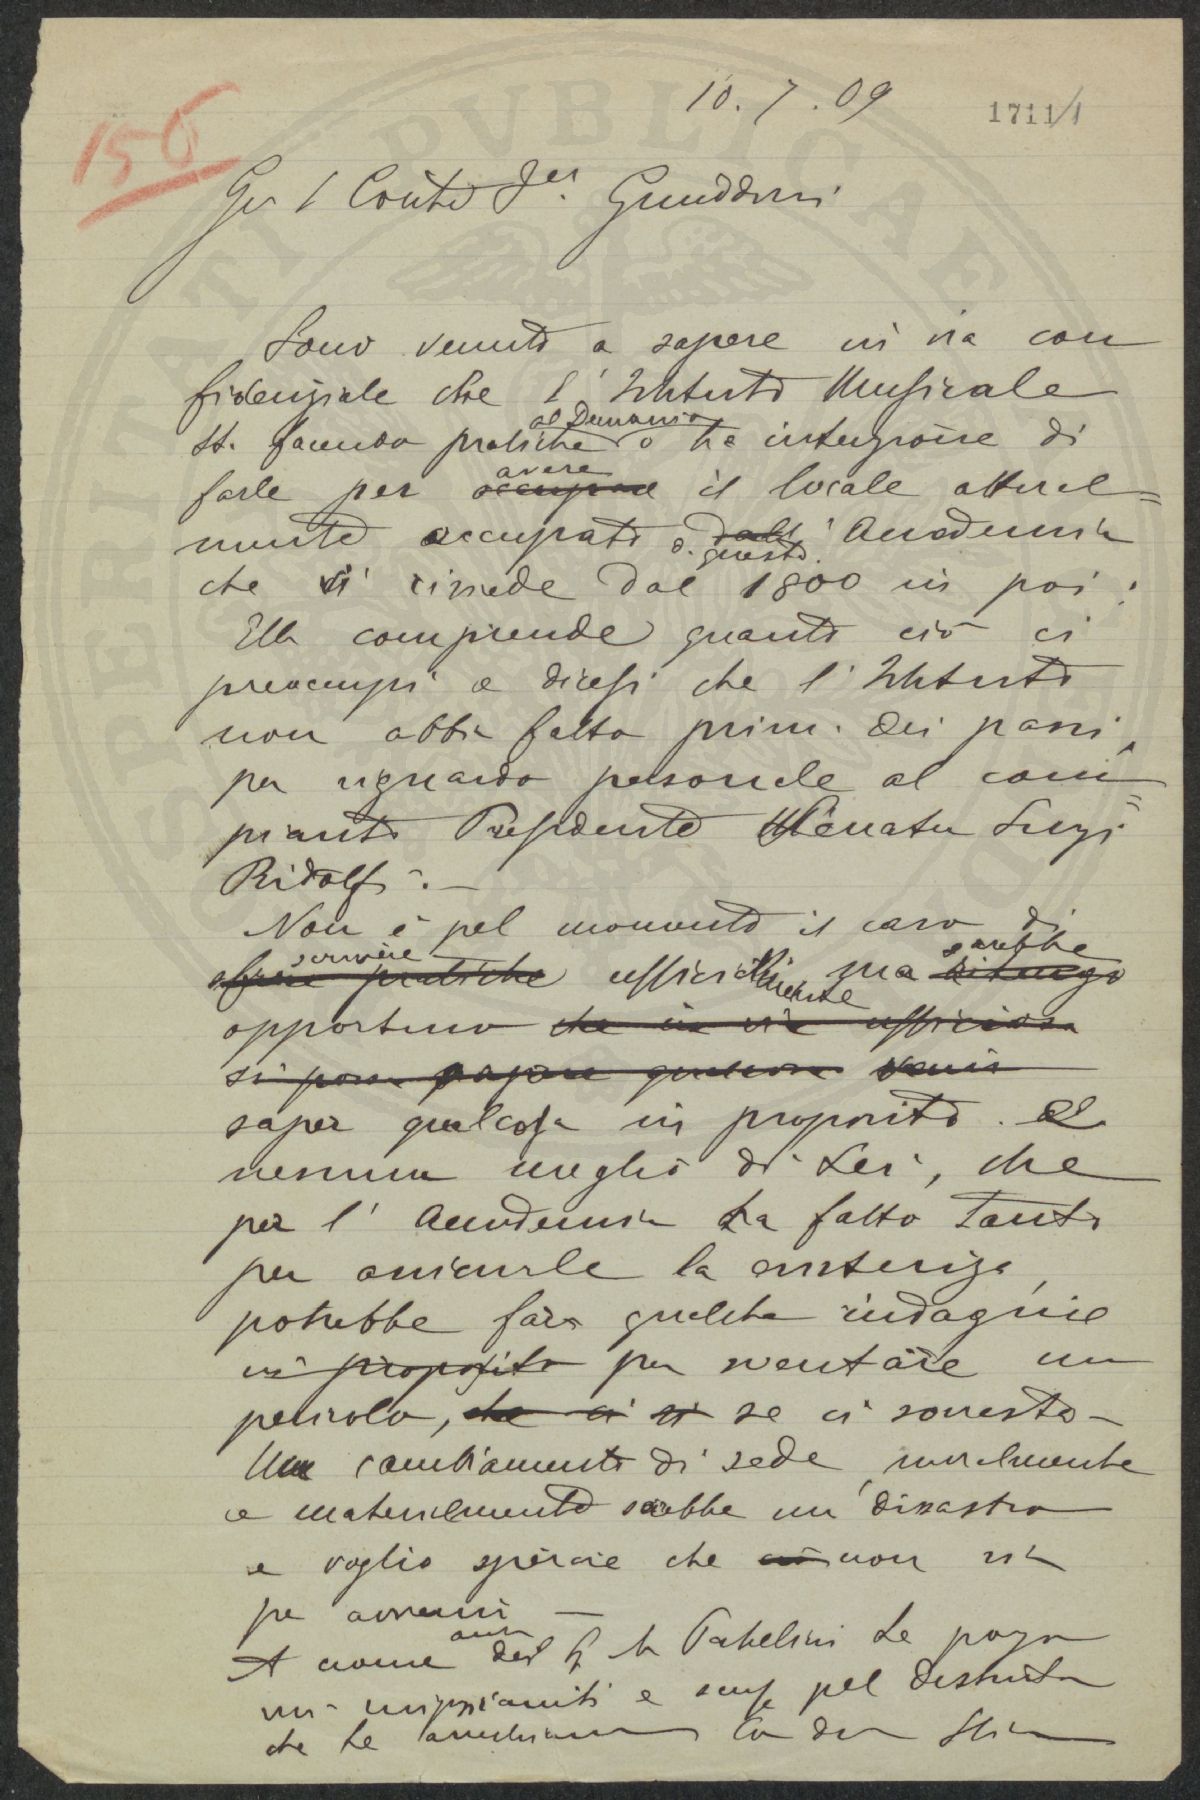 10. 7. 09
1711/1
156
Conte
Sono venuto a sapere in via con
fidenziale che l'Istituto Musicale
sta facendo pratiche al Demanio o ha intenzione di
farle per occupare avere il locale attual=
mente occupato dall' Accademia
che vi risiede da questa dal 1800 in poi:
Ella comprende quanto ciò ci
preoccupi e dicesi che l'Istituto
non abbia fatto prima dei passi
per riguardo personale al com=
pianto Presidente Senatore Luigi
Ridolfi. —
Non è pel momento il caso di
scrivere pratiche ufficialmente ma sarebbe ritengo
opportuno che in via ufficiosa
si possa sapere qualcosa
saper qualcosa in proposito. E
nessuno meglio di Lei, che
per l'Accademia ha fatto tanto
per assicurarle la esistenza,
potrebbe fare qualche indagine
in proposito per sventare un
pericolo, che ci si se ci sovrasta –
Un cambiamento di sede, moralmente
e materialmente sarebbe un disastro
e voglio sperare che ciò non sia
per avvenire —
A nome anche del Le porgo
miei ringraziamenti e scuse pel disturbo
che Le arrechiamo